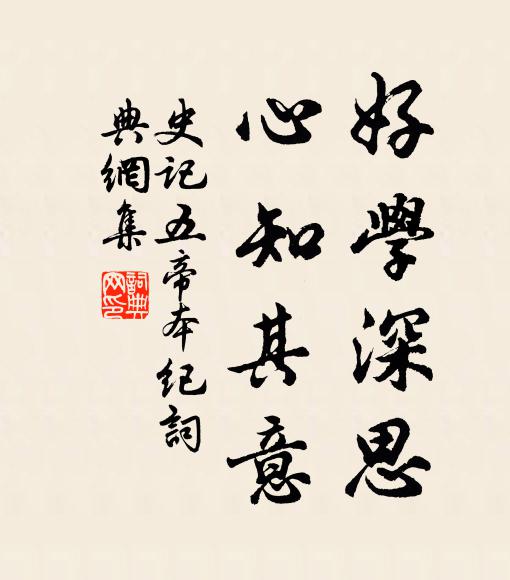 好學深思
心知其意
史记五帝本纪詞
典網集
詞典
网印